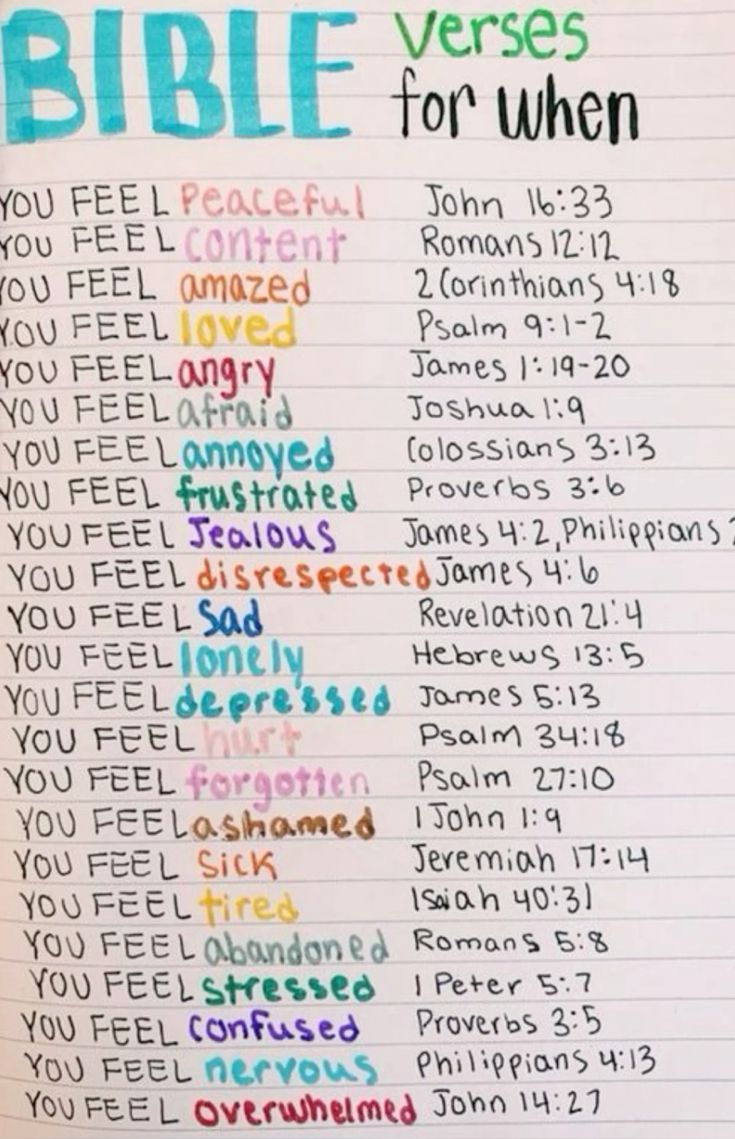 BIBLE verses
for when
YOU FEEL Peaceful John 16:33
YOU FEEL content Romans 12:12
YOU FEEL amazed 2 Corinthians 4:18
YOU FEEL loved Psalm 9:1-2
YOU FEEL angry James 1:19-20
YOU FEEL afraid Joshua 1:9
YOU FEEL annoyed Colossians 3:13
YOU FEEL frustrated Proverbs 3:6
YOU FEEL Jealous James 4:2, Philippians
YOU FEEL disrespected James 4:6
YOU FEEL Sad Revelation 21:4
YOU FEEL lonely Hebrews 13:5
YOU FEEL depressed James 5:13
YOU FEEL hurt Psalm 34:18
YOU FEEL forgotten Psalm 27:10
YOU FEEL ashamed 1 John 1:9
YOU FEEL Sick Jeremiah 17:14
YOU FEEL tired Isaiah 40:31
YOU FEEL abandoned Romans 5:8
YOU FEEL stressed 1 Peter 5:7
YOU FEEL confused Proverbs 3:5
YOU FEEL nervous Philippians 4:13
YOU FEEL overwhelmed John 14:27